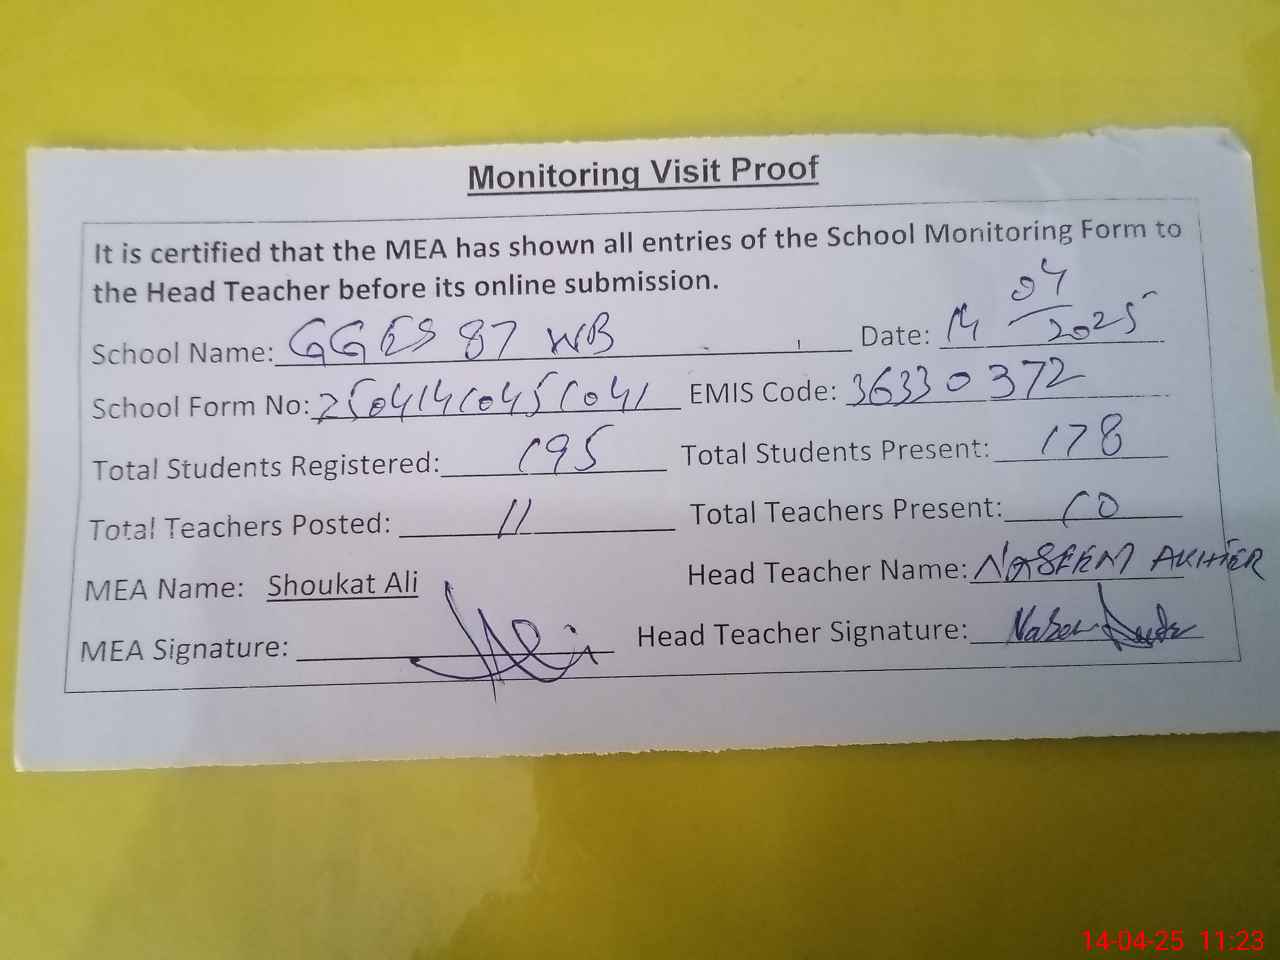 Monitoring Visit Proof
It is certified that the MEA has shown all entries of the School Monitoring Form to
the Head Teacher before its online submission.
School Name: GGES 87 WB Date: 14/04/2025
School Form No: 25041410451041 EMIS Code: 36330372
Total Students Registered: 195 Total Students Present: 178
Total Teachers Posted: 11 Total Teachers Present: 10
MEA Name: Shoukat Ali Head Teacher Name: NASEEM AKHTER
MEA Signature: Head Teacher Signature:
14-04-25 11:23